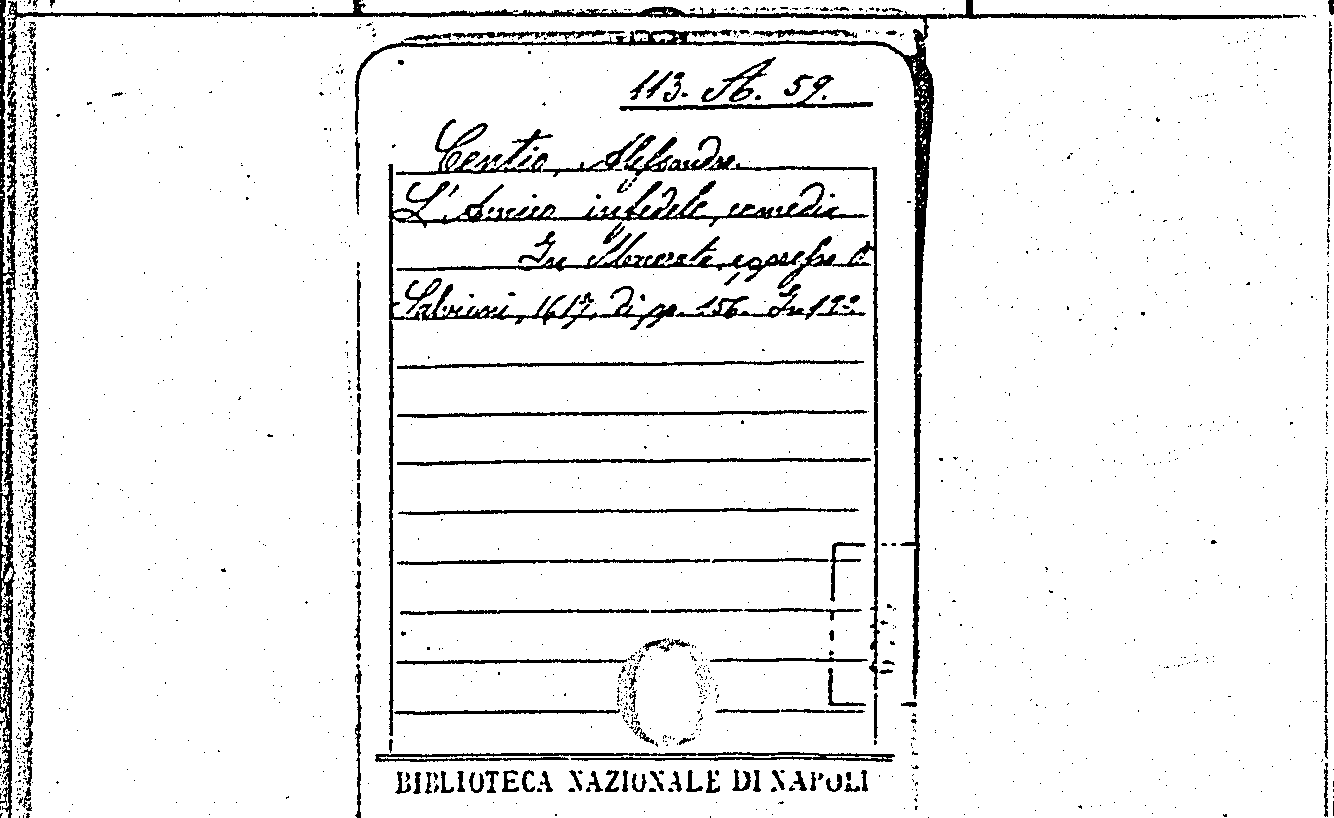 113. A. 59.
Centio, Alessandro.
L'Amico infedele, comedia
In Macerata, appresso
Salvioni, 1617, di pp. 156. In 12°.
BIBLIOTECA NAZIONALE DI NAPOLI